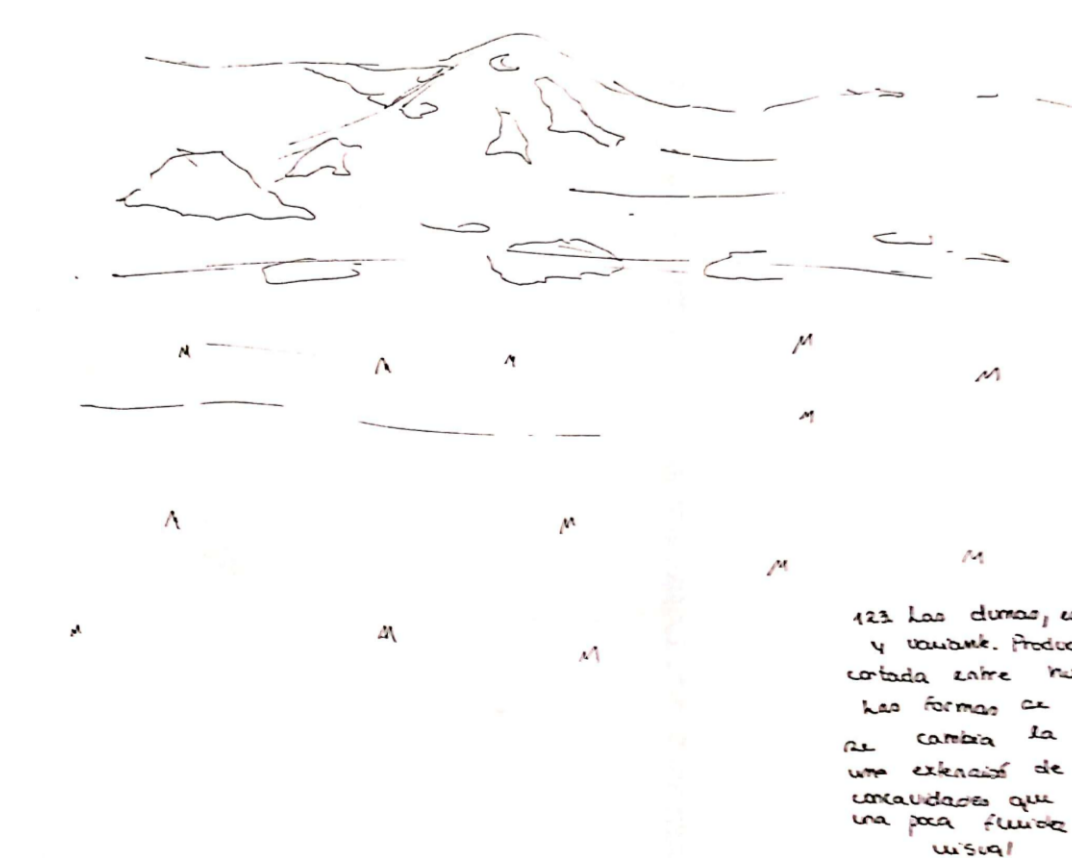 123. Las dunas,
y variante. Produc
cortada entre
Las formas se
se cambia la
una extensió de
concavidades que
una poca fluidez
visual